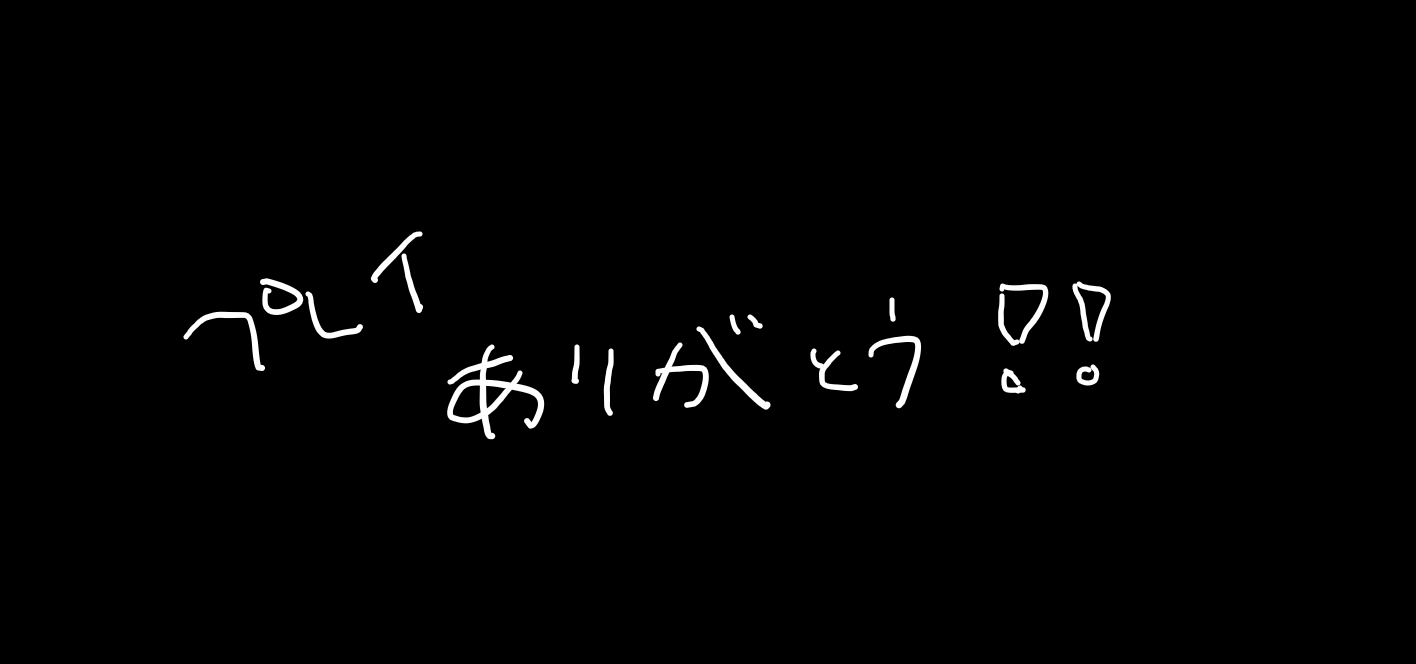 プレイ
ありがとう!!